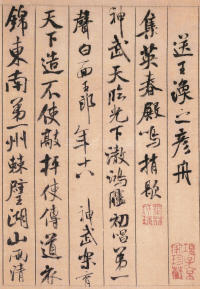 送王渙之彥舟
集英春殿鳴捎歇
神武天臨光下澈鴻臚初唱第一
聲白面玉郎年十八神武樂育
天下造不使敲抨使傳道衣
錦東南第一州棘璧湖山兩清